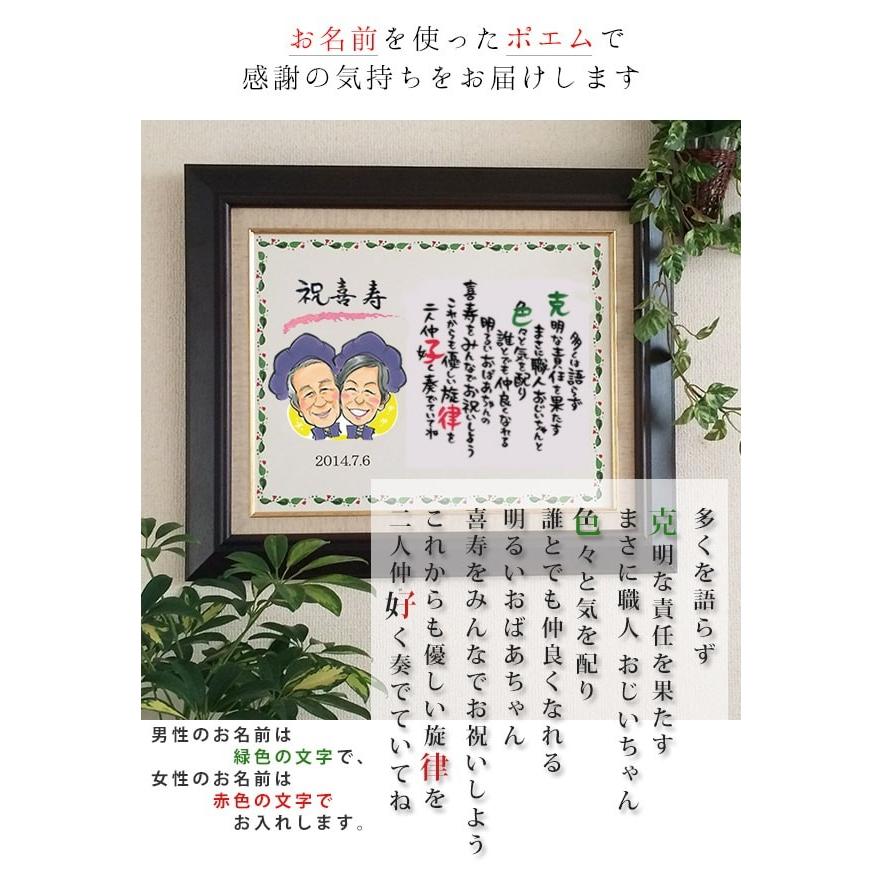 お名前を使ったポエムで
感謝の気持ちをお届けします
祝喜寿
2014.7.6
多くは語らず
克明な責任を果たす
まさに職人おじいちゃんと
色々と気を配り
誰とでも仲良くなれる
明るいおばあちゃんの
喜寿をみんなでお祝いしよう
これからも優しい旋律を
二人仲好く奏でていてね
多くを語らず
克明な責任を果たす
まさに職人 おじいちゃん
色々と気を配り
誰とでも仲良くなれる
明るいおばあちゃん
喜寿をみんなでお祝いしよう
これからも優しい旋律を
二人仲好く奏でていてね
男性のお名前は
緑色の文字で、
女性のお名前は
赤色の文字で
お入れします。